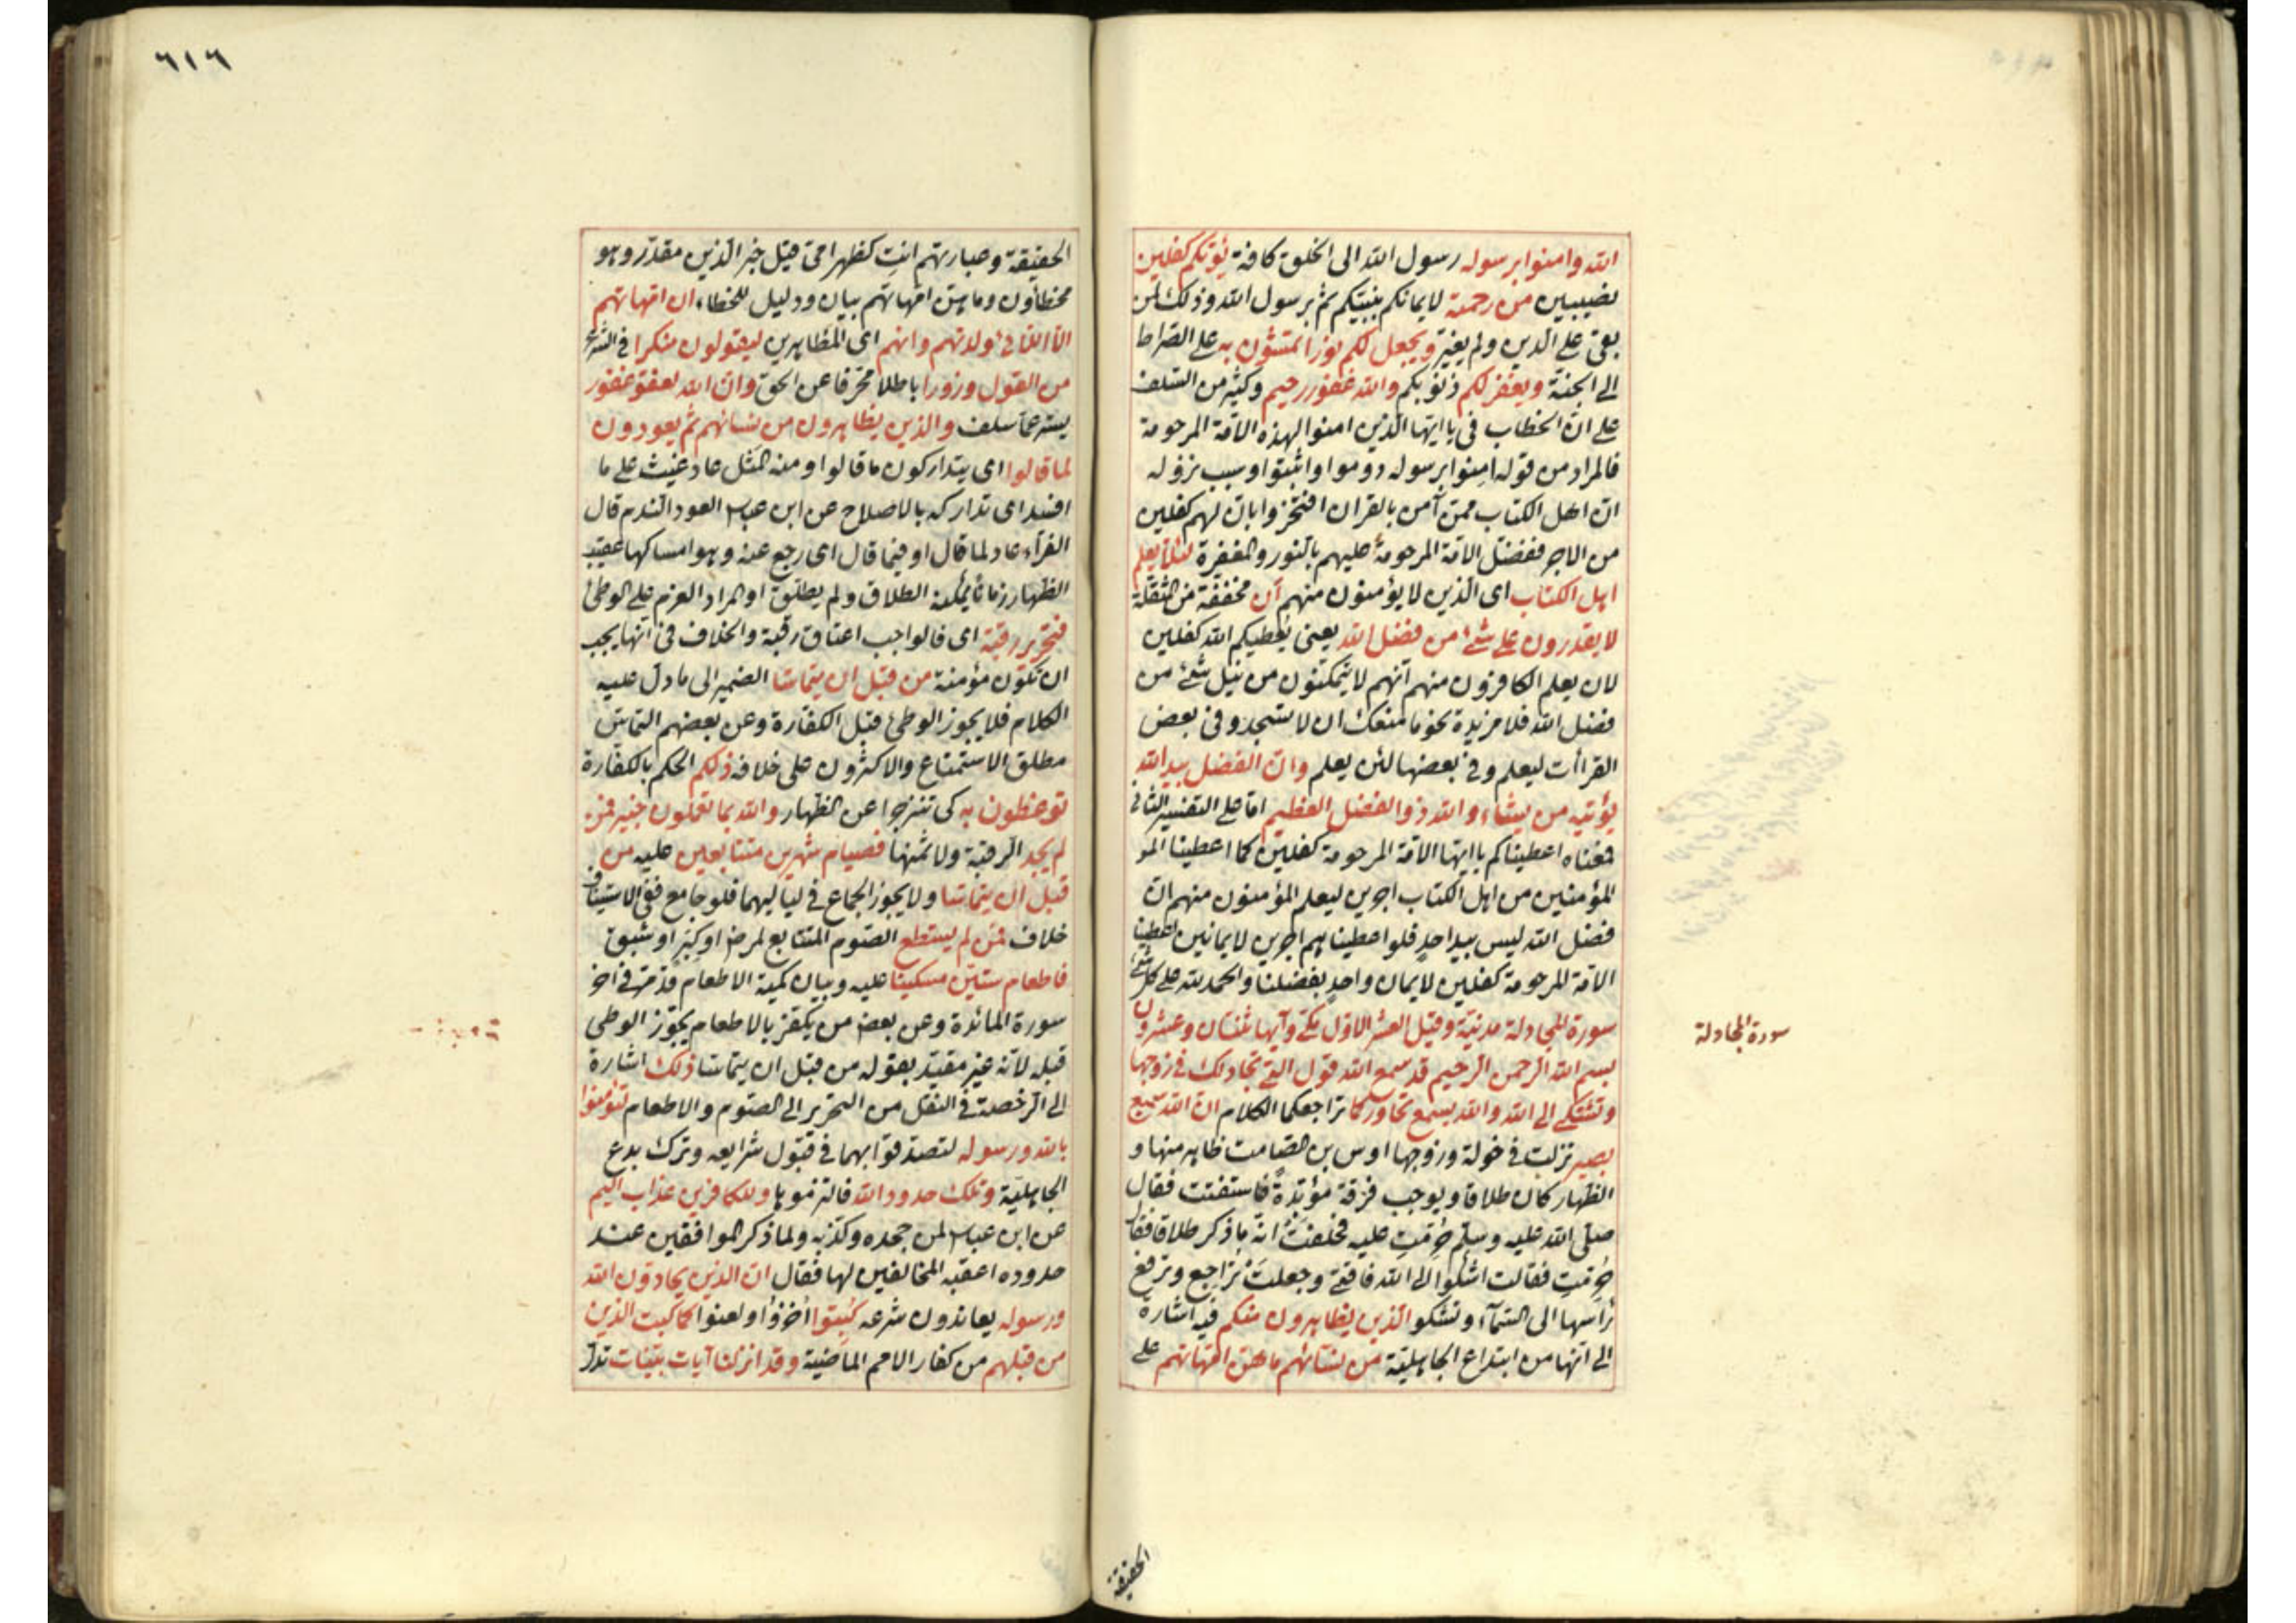 الله وامنوا برسوله رسول الله الى الخلق كافة يؤتكم كفلين
نصيبين من رحمته لايمانكم بنبيكم ثم برسول الله وذلك لمن
بقى على الدين ولم يغير ويجعل لكم نورا تمشون به على الصراط
الى الجنة ويغفر لكم ذنوبكم والله غفور رحيم وكثير من السلف
على ان الخطاب فى يا ايها الذين امنوا لهذه الامة المرحومة
فالمراد من قوله امنوا برسوله دوموا واثبتوا وسبب نزوله
ان اهل الكتاب ممن آمن بالقران افتخروا بان لهم كفلين
من الاجر ففضل الامة المرحومة عليهم بالنور والمغفرة لئلا يعلم
اهل الكتاب اى الذين لا يؤمنون منهم ان مخففة من الثقلة
لا يقدرون على شئ من فضل الله يعنى يعطيكم الله كفلين
لان يعلم الكافرون منهم انهم لا يتمكنون من نيل شئ من
فضل الله فلا مزيدة نحو ما منعك ان لا تسجد وفى بعض
القراأت ليعلم وفى بعضها لئن يعلم وان الفضل بيد الله
يؤتيه من يشاء والله ذو الفضل العظيم اما على التفسير الثانى
فمعناه اعطيناكم يا ايها الامة المرحومة كفلين كما اعطينا المو
المؤمنين من اهل الكتاب اجرين ليعلم المؤمنون منهم ان
فضل الله ليس بيد احد فلو اعطيناهم اجرين لايمانين اعطينا
الامة المرحومة كفلين لايمان واحد بفضلنا والحمد لله على كل شئ
سورة المجادلة مدنية وقيل العشر الاول مكى وآيها ثنتان وعشرون
بسم الله الرحمن الرحيم قد سمع الله قول التى تجادلك فى زوجها
وتشتكى الى الله والله يسمع تحاوركما تراجعكما الكلام ان الله سميع
بصير نزلت فى خولة وزوجها اوس بن الصامت ظاهر منها و
الظهار كان طلاقا ويوجب فرقة مؤبدة فاستفتت فقال
صلى الله عليه وسلم حرمت عليه فحلفت انه ما ذكر طلاقا فقال
حرمت فقالت اشكو الى الله فاقتى وجعلت تراجع وترفع
رأسها الى السمآء وتشكو الذين يظاهرون منكم فيه اشارة
الى انها من ابتداع الجاهلية من نسائهم ما هن امهاتهم على
سورة المجادلة
الحقيقة
٦١٦
الحقيقة وعبارتهم انت كظهر امى قيل خبر الذين مقدر وهو
مخطأون وما هن امهاتهم بيان ودليل للخطاء ان امهاتهم
الا اللائى ولدنهم وانهم اى المظاهرين ليقولون منكرا فى الشرع
من القول وزورا باطلا محرفا عن الحق وان الله لعفو غفور
يستر عما سلف والذين يظاهرون من نسائهم ثم يعودون
لما قالوا اى يتداركون ما قالوا ومنه المثل عاد غيث على ما
افسد اى تداركه بالاصلاح عن ابن عباس العود الندم قال
الفرآء عاد لما قال او فيما قال اى رجع عنه وهو امساكها عقيب
الظهار زمانا يمكنه الطلاق ولم يطلق او المراد العزم على الوطئ
فتحرير رقبة اى فالواجب اعتاق رقبة والخلاف فى انها يجب
ان تكون مؤمنة من قبل ان يتماسا الضمير الى ما دل عليه
الكلام فلا يجوز الوطئ قبل الكفارة وعن بعضهم التماس
مطلق الاستمتاع والاكثرون على خلافه ذلكم الحكم بالكفارة
توعظون به كى تنزجوا عن الظهار والله بما تعملون خبير فمن
لم يجد الرقبة ولا ثمنها فصيام شهرين متتابعين عليه من
قبل ان يتماسا ولا يجوز الجماع فى لياليهما فلو جامع ففى الاستيناف
خلاف فمن لم يستطع الصوم المتتابع لمرض او كبر او شبق
فاطعام ستين مسكينا عليه وبيان كمية الاطعام قد مر فى اخر
سورة المائدة وعن بعض من يكفر بالاطعام يجوز الوطى
قبله لانه غير مقيد بقوله من قبل ان يتماسا ذلك اشارة
الى الرخصة فى النقل من التحرير الى الصوم والاطعام لتؤمنوا
بالله ورسوله لتصدقوا بهما فى قبول شرايعه وترك بدع
الجاهلية وتلك حدود الله فالتزموها وللكافرين عذاب اليم
عن ابن عباس لمن جحده وكذبه ولما ذكر الموافقين عند
حدوده اعقبه المخالفين لها فقال ان الذين يحادون الله
ورسوله يعاندون شرعه كبتوا اخزوا ولعنوا كما كبت الذين
من قبلهم من كفار الامم الماضية وقد انزلنا آيات بينات تدل